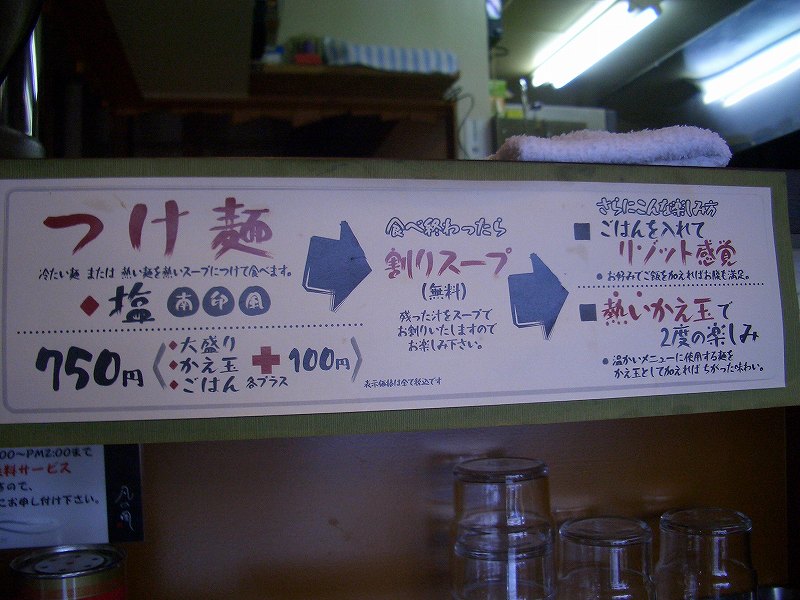 つけ麺
冷たい麺 または 熱い麺を熱いスープにつけて食べます。
塩 南 印 風
750円
大盛り
かえ玉
ごはん 各プラス
+100円
食べ終わったら
割りスープ
(無料)
残った汁をスープで
お割りいたしますので
お楽しみ下さい。
表示価格は全て税込です
さらにこんな楽しみ方
ごはんを入れて
リゾット感覚
お好みでご飯を加えればお腹も満足。
熱いかえ玉で
2度の楽しみ
温かいメニューに使用する麺を
かえ玉として加えれば ちがった味わい。
00～PM2:00まで
料サービス
ので、
お申し付け下さい。